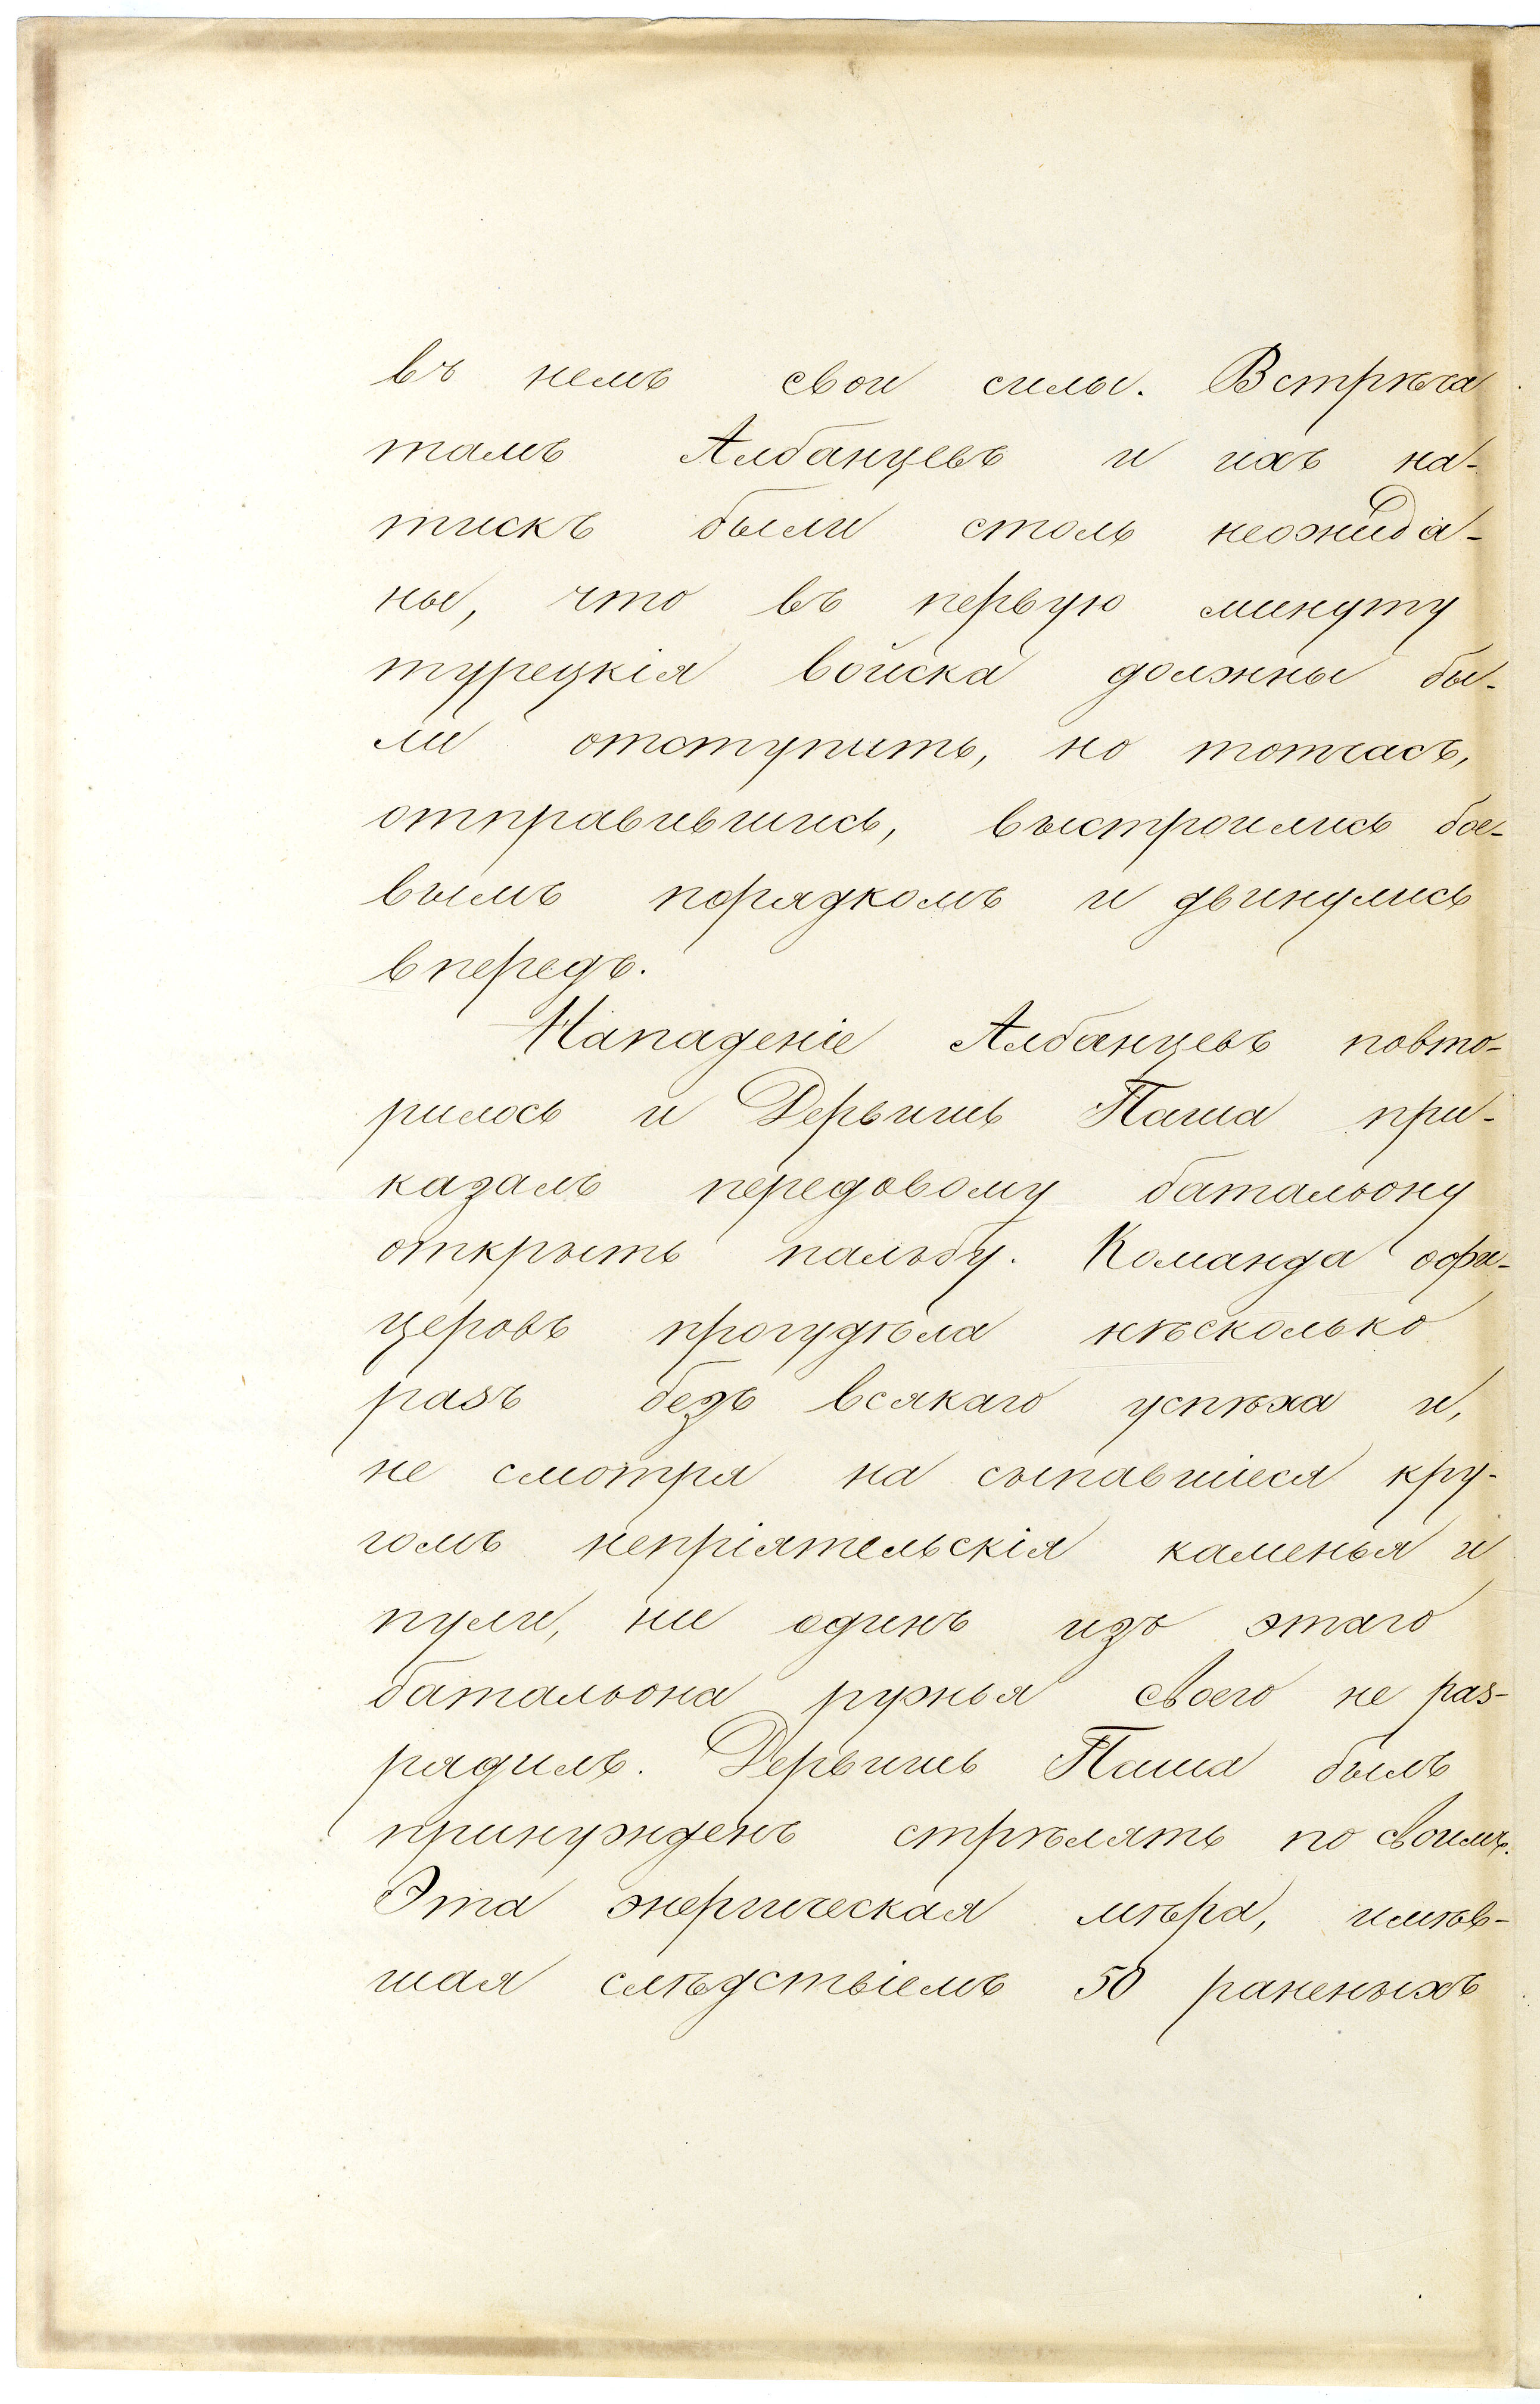 въ немъ свои силы. Встрѣча
тамъ Албанцевъ и ихъ на-
тискъ были столь неожида-
ны, что въ первую минуту
турецкія войска должны бы-
ли отступить, но тотчасъ,
отправившись, выстроились бое-
вымъ порядкомъ и двинулись
впередъ.
Нападеніе Албанцевъ повто-
рилось и Дервишъ Паша при-
казалъ передовому батальону
открыть пальбу. Команда офи-
церовъ прогудѣла нѣсколько
разъ безъ всякаго успѣха и,
не смотря на сыпавшіеся кру-
гомъ непріятельскія каменья и
пули, ни одинъ изъ этаго
батальона ружья своего не раз-
рядилъ. Дервишъ Паша былъ
принужденъ стрѣлять по своимъ.
Эта энергическая мѣра, имѣв-
шая слѣдствіемъ 50 раненыхъ